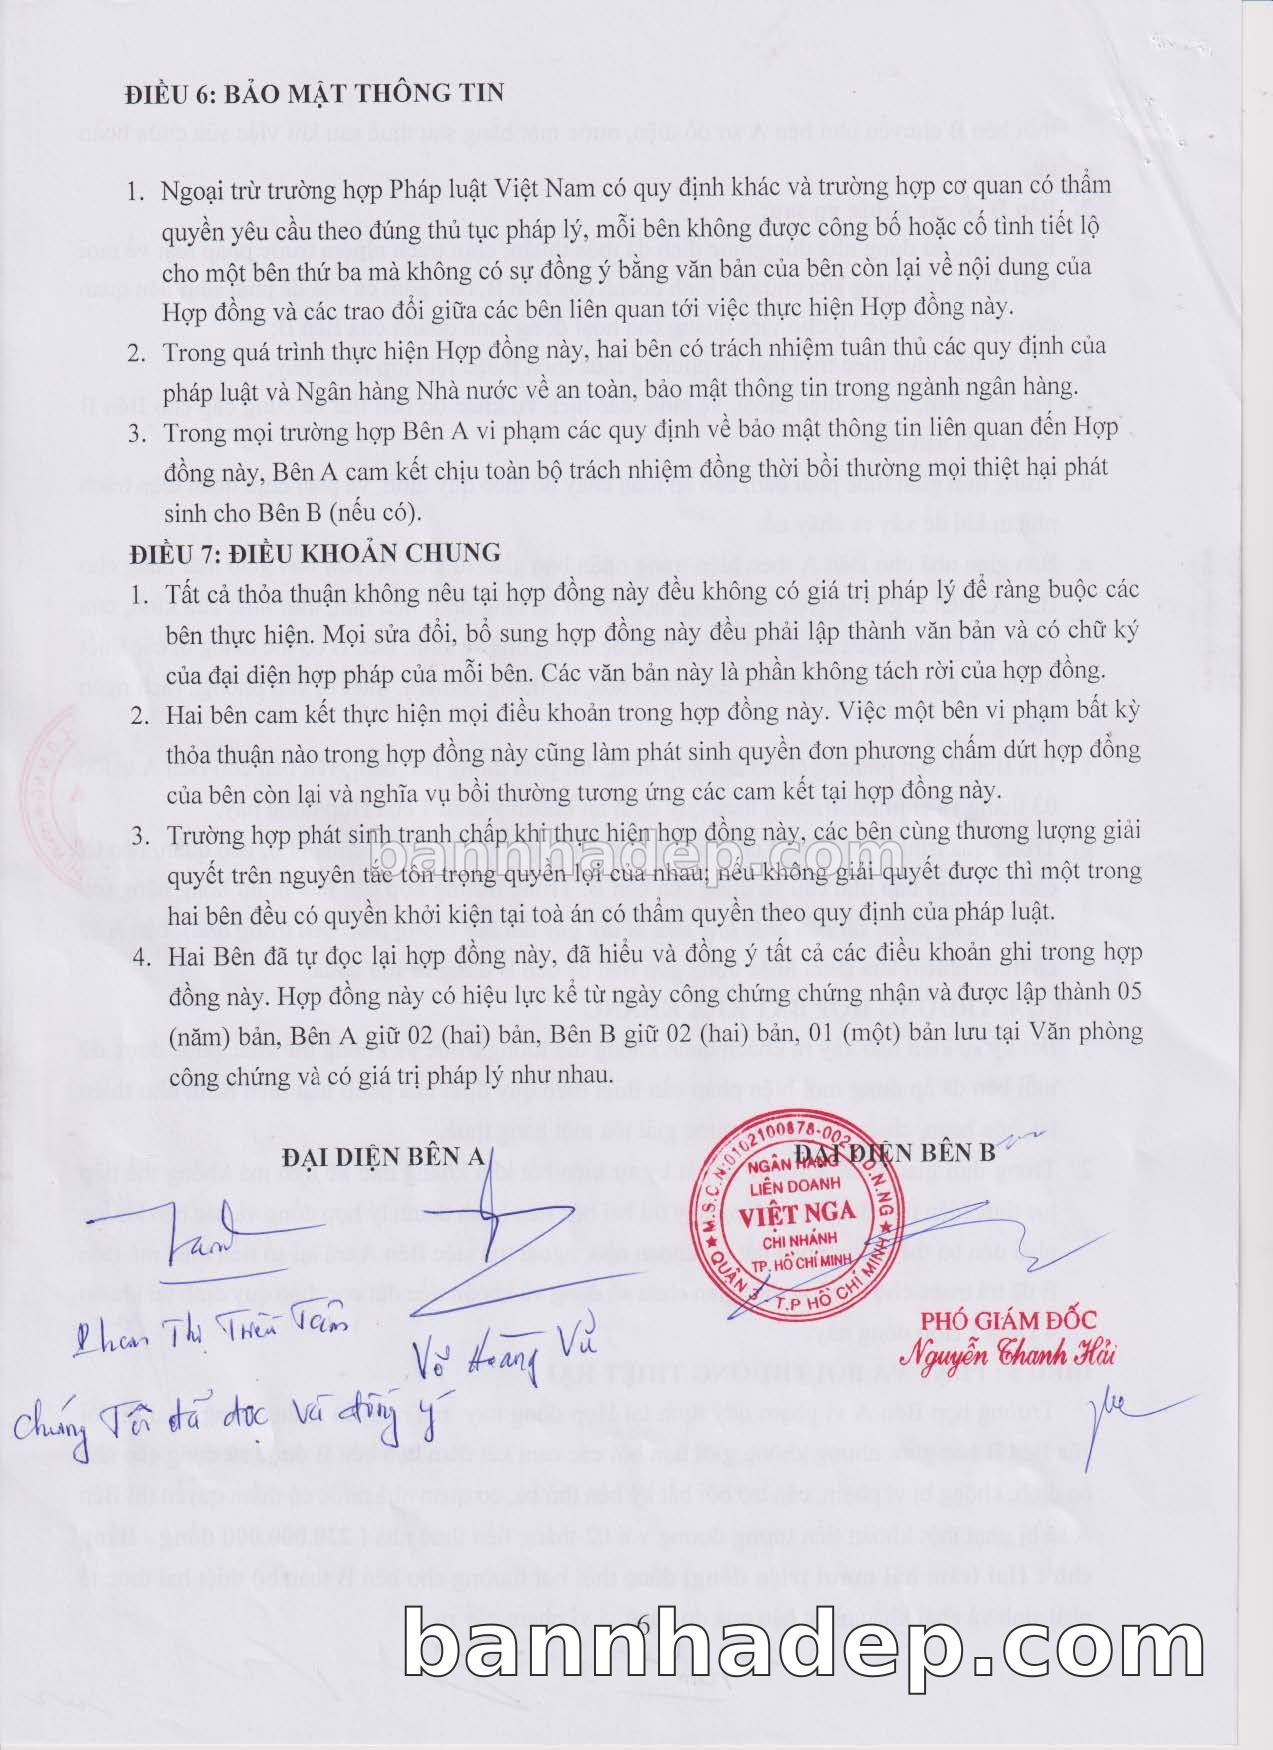 ĐIỀU 6: BẢO MẬT THÔNG TIN
1. Ngoại trừ trường hợp Pháp luật Việt Nam có quy định khác và trường hợp cơ quan có thẩm
quyền yêu cầu theo đúng thủ tục pháp lý, mỗi bên không được công bố hoặc cố tình tiết lộ
cho một bên thứ ba mà không có sự đồng ý bằng văn bản của bên còn lại về nội dung của
Hợp đồng và các trao đổi giữa các bên liên quan tới việc thực hiện Hợp đồng này.
2. Trong quá trình thực hiện Hợp đồng này, hai bên có trách nhiệm tuân thủ các quy định của
pháp luật và Ngân hàng Nhà nước về an toàn, bảo mật thông tin trong ngành ngân hàng.
3. Trong mọi trường hợp Bên A vi phạm các quy định về bảo mật thông tin liên quan đến Hợp
đồng này, Bên A cam kết chịu toàn bộ trách nhiệm đồng thời bồi thường mọi thiệt hại phát
sinh cho Bên B (nếu có).
ĐIỀU 7: ĐIỀU KHOẢN CHUNG
1. Tất cả thỏa thuận không nêu tại hợp đồng này đều không có giá trị pháp lý để ràng buộc các
bên thực hiện. Mọi sửa đổi, bổ sung hợp đồng này đều phải lập thành văn bản và có chữ ký
của đại diện hợp pháp của mỗi bên. Các văn bản này là phần không tách rời của hợp đồng.
2. Hai bên cam kết thực hiện mọi điều khoản trong hợp đồng này. Việc một bên vi phạm bất kỳ
thỏa thuận nào trong hợp đồng này cũng làm phát sinh quyền đơn phương chấm dứt hợp đồng
của bên còn lại và nghĩa vụ bồi thường tương ứng các cam kết tại hợp đồng này.
3. Trường hợp phát sinh tranh chấp khi thực hiện hợp đồng này, các bên cùng thương lượng giải
quyết trên nguyên tắc tôn trọng quyền lợi của nhau; nếu không giải quyết được thì một trong
hai bên đều có quyền khởi kiện tại toà án có thẩm quyền theo quy định của pháp luật.
bannhadep.com
4. Hai Bên đã tự đọc lại hợp đồng này, đã hiểu và đồng ý tất cả các điều khoản ghi trong hợp
đồng này. Hợp đồng này có hiệu lực kể từ ngày công chứng chứng nhận và được lập thành 05
(năm) bản, Bên A giữ 02 (hai) bản, Bên B giữ 02 (hai) bản, 01 (một) bản lưu tại Văn phòng
công chứng và có giá trị pháp lý như nhau.
ĐẠI DIỆN BÊN A
ĐẠI DIỆN BÊN B
M.S.C.N:0102100878-002
NGÂN HÀNG
LIÊN DOANH
VIỆT NGA
CHI NHÁNH
TP. HỒ CHÍ MINH
QUẬN 3 - T.P HỒ CHÍ MINH
Phan Thị Triều Tâm
Võ Hoàng Vũ
PHÓ GIÁM ĐỐC
Nguyễn Thanh Hải
Chúng Tôi đã đọc và đồng ý
6
bannhadep.com